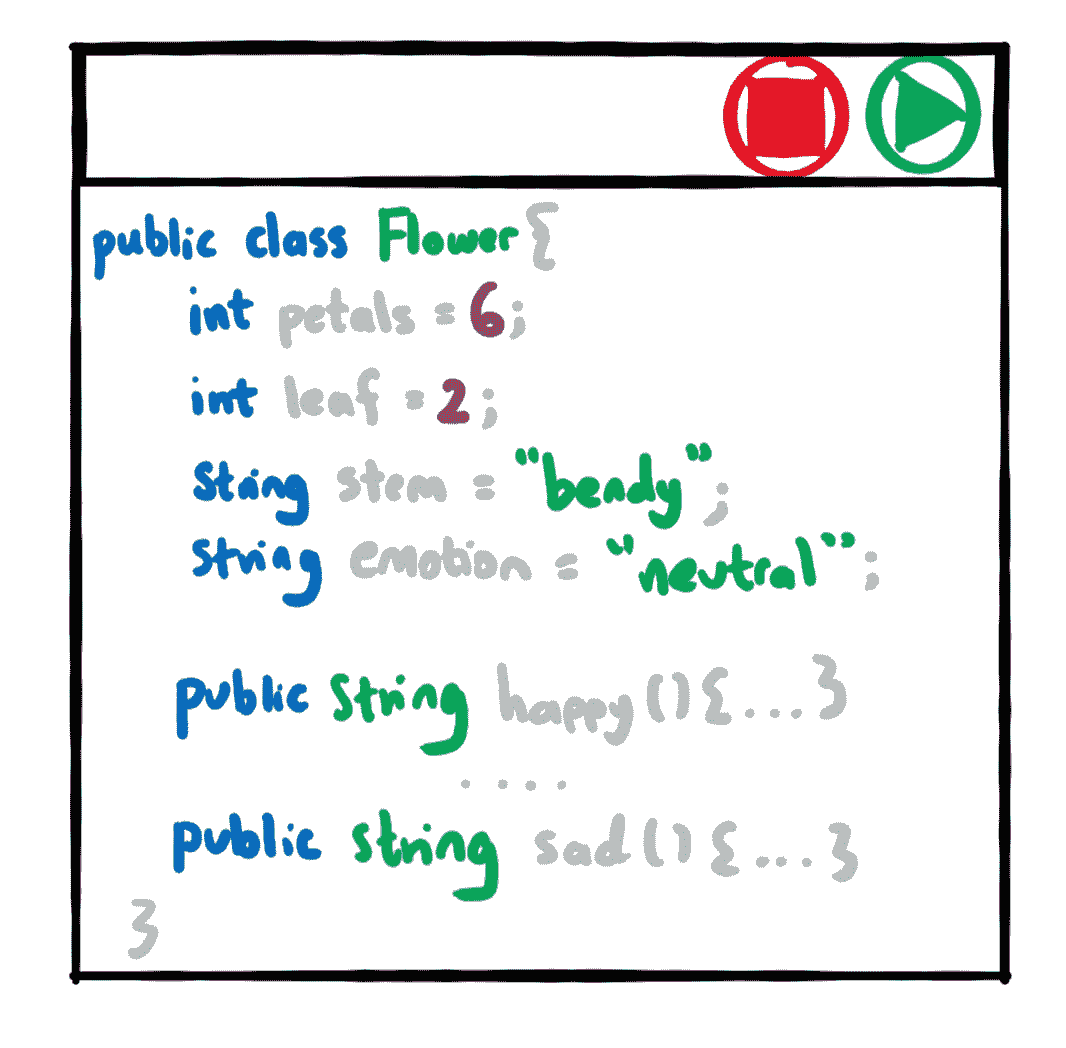 public class Flower {
int petals = 6;
int leaf = 2;
String stem = "bendy";
String emotion = "neutral";
public String happy(){...}
....
public string sad(){...}
}